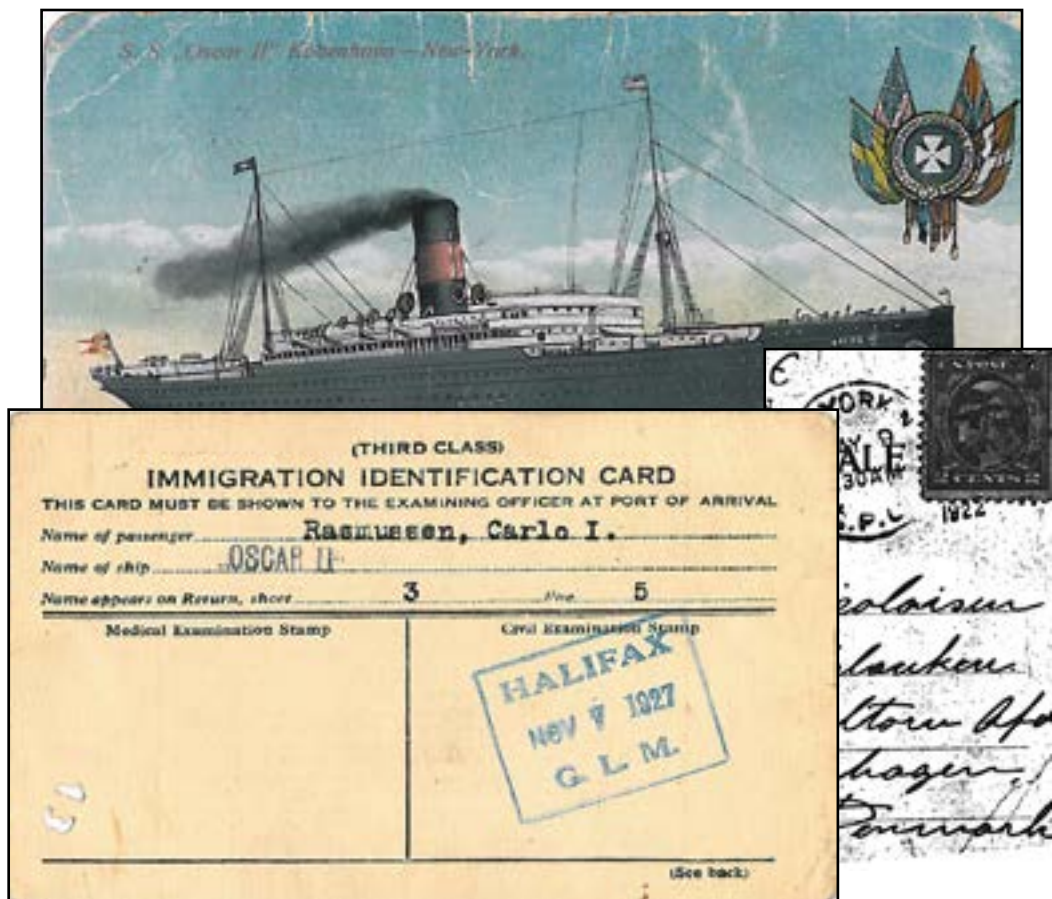 S. S. „Oscar II" Köbenhavn – New-York.
(THIRD CLASS)
IMMIGRATION IDENTIFICATION CARD
THIS CARD MUST BE SHOWN TO THE EXAMINING OFFICER AT PORT OF ARRIVAL
Name of passenger Rasmussen, Carlo I.
Name of ship OSCAR II
Name appears on Return, sheet 3 line 5
Medical Examination Stamp
Civil Examination Stamp
HALIFAX
NOV 7 1927
G. L. M.
(See back)
YORK
30AM
1922
2 CENTS 2
hagen
Denmark